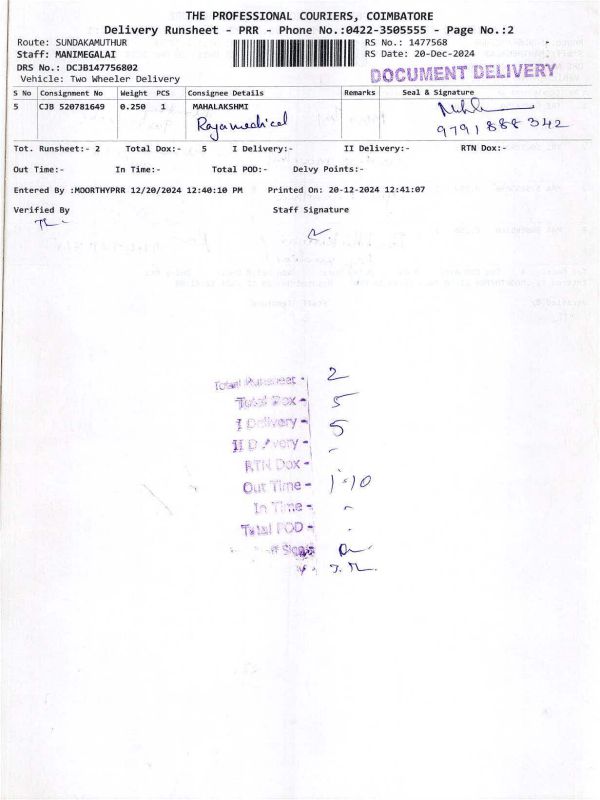 THE PROFESSIONAL COURIERS, COIMBATORE
Delivery Runsheet - PRR - Phone No.:0422-3505555 - Page No.:2
Route: SUNDAKAMUTHUR RS No.: 1477568
Staff: MANIMEGALAI RS Date: 20-Dec-2024
DRS No.: DCJB147756802 DOCUMENT DELIVERY
Vehicle: Two Wheeler Delivery
S No Consignment No Weight PCS Consignee Details Remarks Seal & Signature
5 CJB 520781649 0.250 1 MAHALAKSHMI
Rajamedical 9791888342
Tot. Runsheet:- 2 Total Dox:- 5 I Delivery:- II Delivery:- RTN Dox:-
Out Time:- In Time:- Total POD:- Delvy Points:-
Entered By :MOORTHYPRR 12/20/2024 12:40:10 PM Printed On: 20-12-2024 12:41:07
Verified By Staff Signature
Total Runsheet - 2
Total Dox - 5
I Delivery - 5
II Delivery - -
RTN Dox -
Out Time - 1:10
In Time - -
Total POD - -